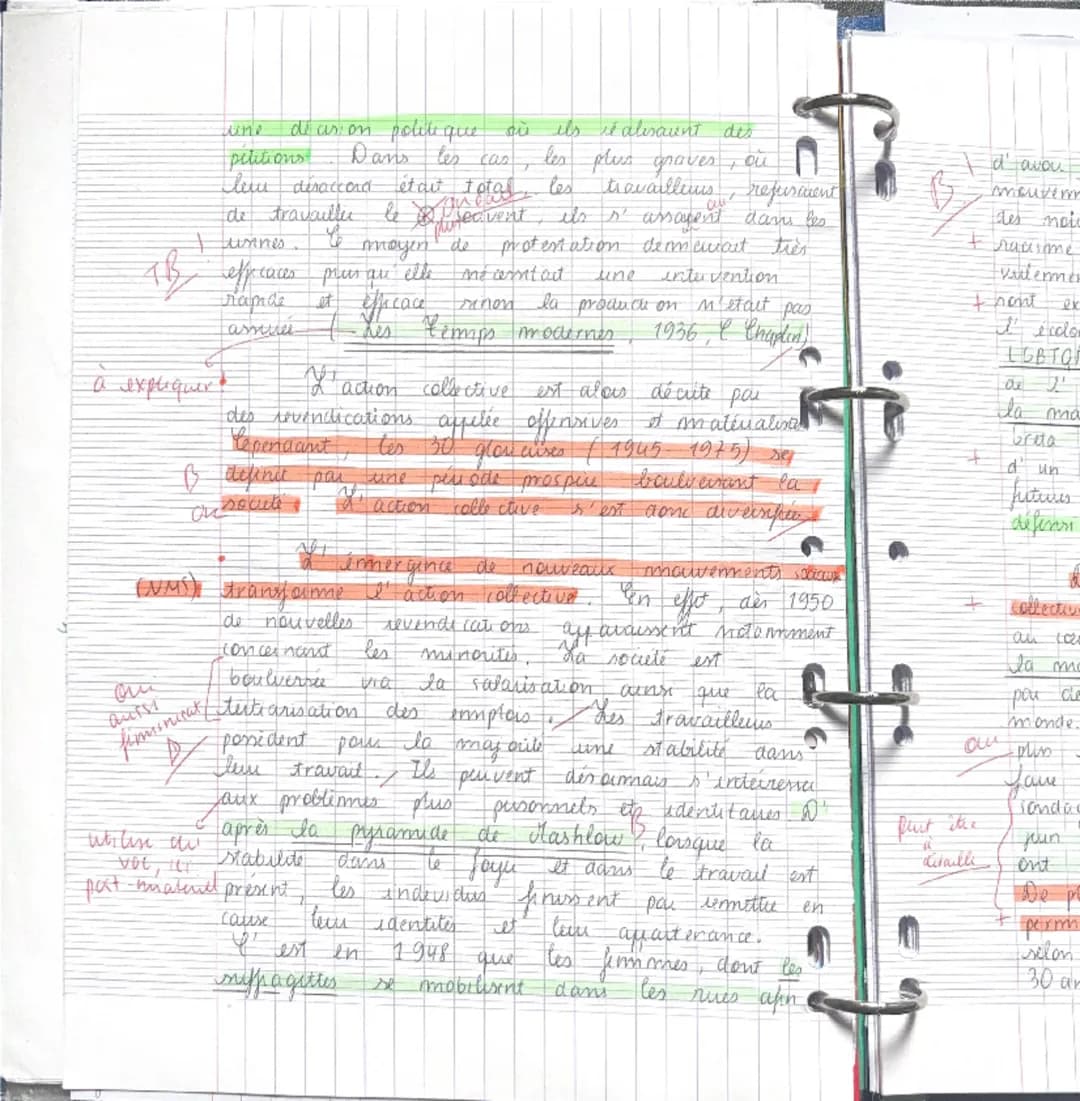 une décision politique où ils réalisaient des
pétitions. Dans les cas, les plus graves, où
leur désaccord était total, les travailleurs, refusaient
de travailler le plus souvent, ils s'arrayent dans les
usines. Ce moyen de protestation demeurait très
TB
efficaces puisqu'elle nécessitait une intervention
rapide et efficace sinon la production n'était pas
assurée (Les Temps modernes, 1936, C Chaplin)
à expliquer
L'action collective est alors décrite par
des revendications appelée offensives et matérialise
Cependant, les 30 glorieuses (1945-1975) se
B
définit par une période prospère bouleversant la
société. L'action collective s'est donc diversifiée
L'émergence de nouveaux mouvements sociaux
(NMS) transforme l'action collective. En effet, dès 1950
de nouvelles revendications apparaissent notamment
concernant les minorités. La société est
boulversée via la salarisation ainsi que la
oui
aussi
tertiarisation des emplois. Les travailleurs
possèdent pour la majorité une stabilité dans
leur travail. Ils peuvent désormais s'intéresser
aux problèmes plus personnels et identitaires D'
après la pyramide de Mashlow, lorsque la
utiliser du
voc, ici
post-matériel
stabilité dans le foyer et dans le travail est
présent, les individus finissent par remettre en
cause leur identités et leur appartenance.
C'est en 1948 que les femmes, dont les
suffragettes se mobilisent dans les rues afin
B
d'avoi
mouvem
des moi
racisme
LGBTQ
de l'
la ma
d'un
futures
défens
collective
au
la ma
par de
monde.
plus
faire
peut être
à
détailler
ont
De p
perm
selon
30 an